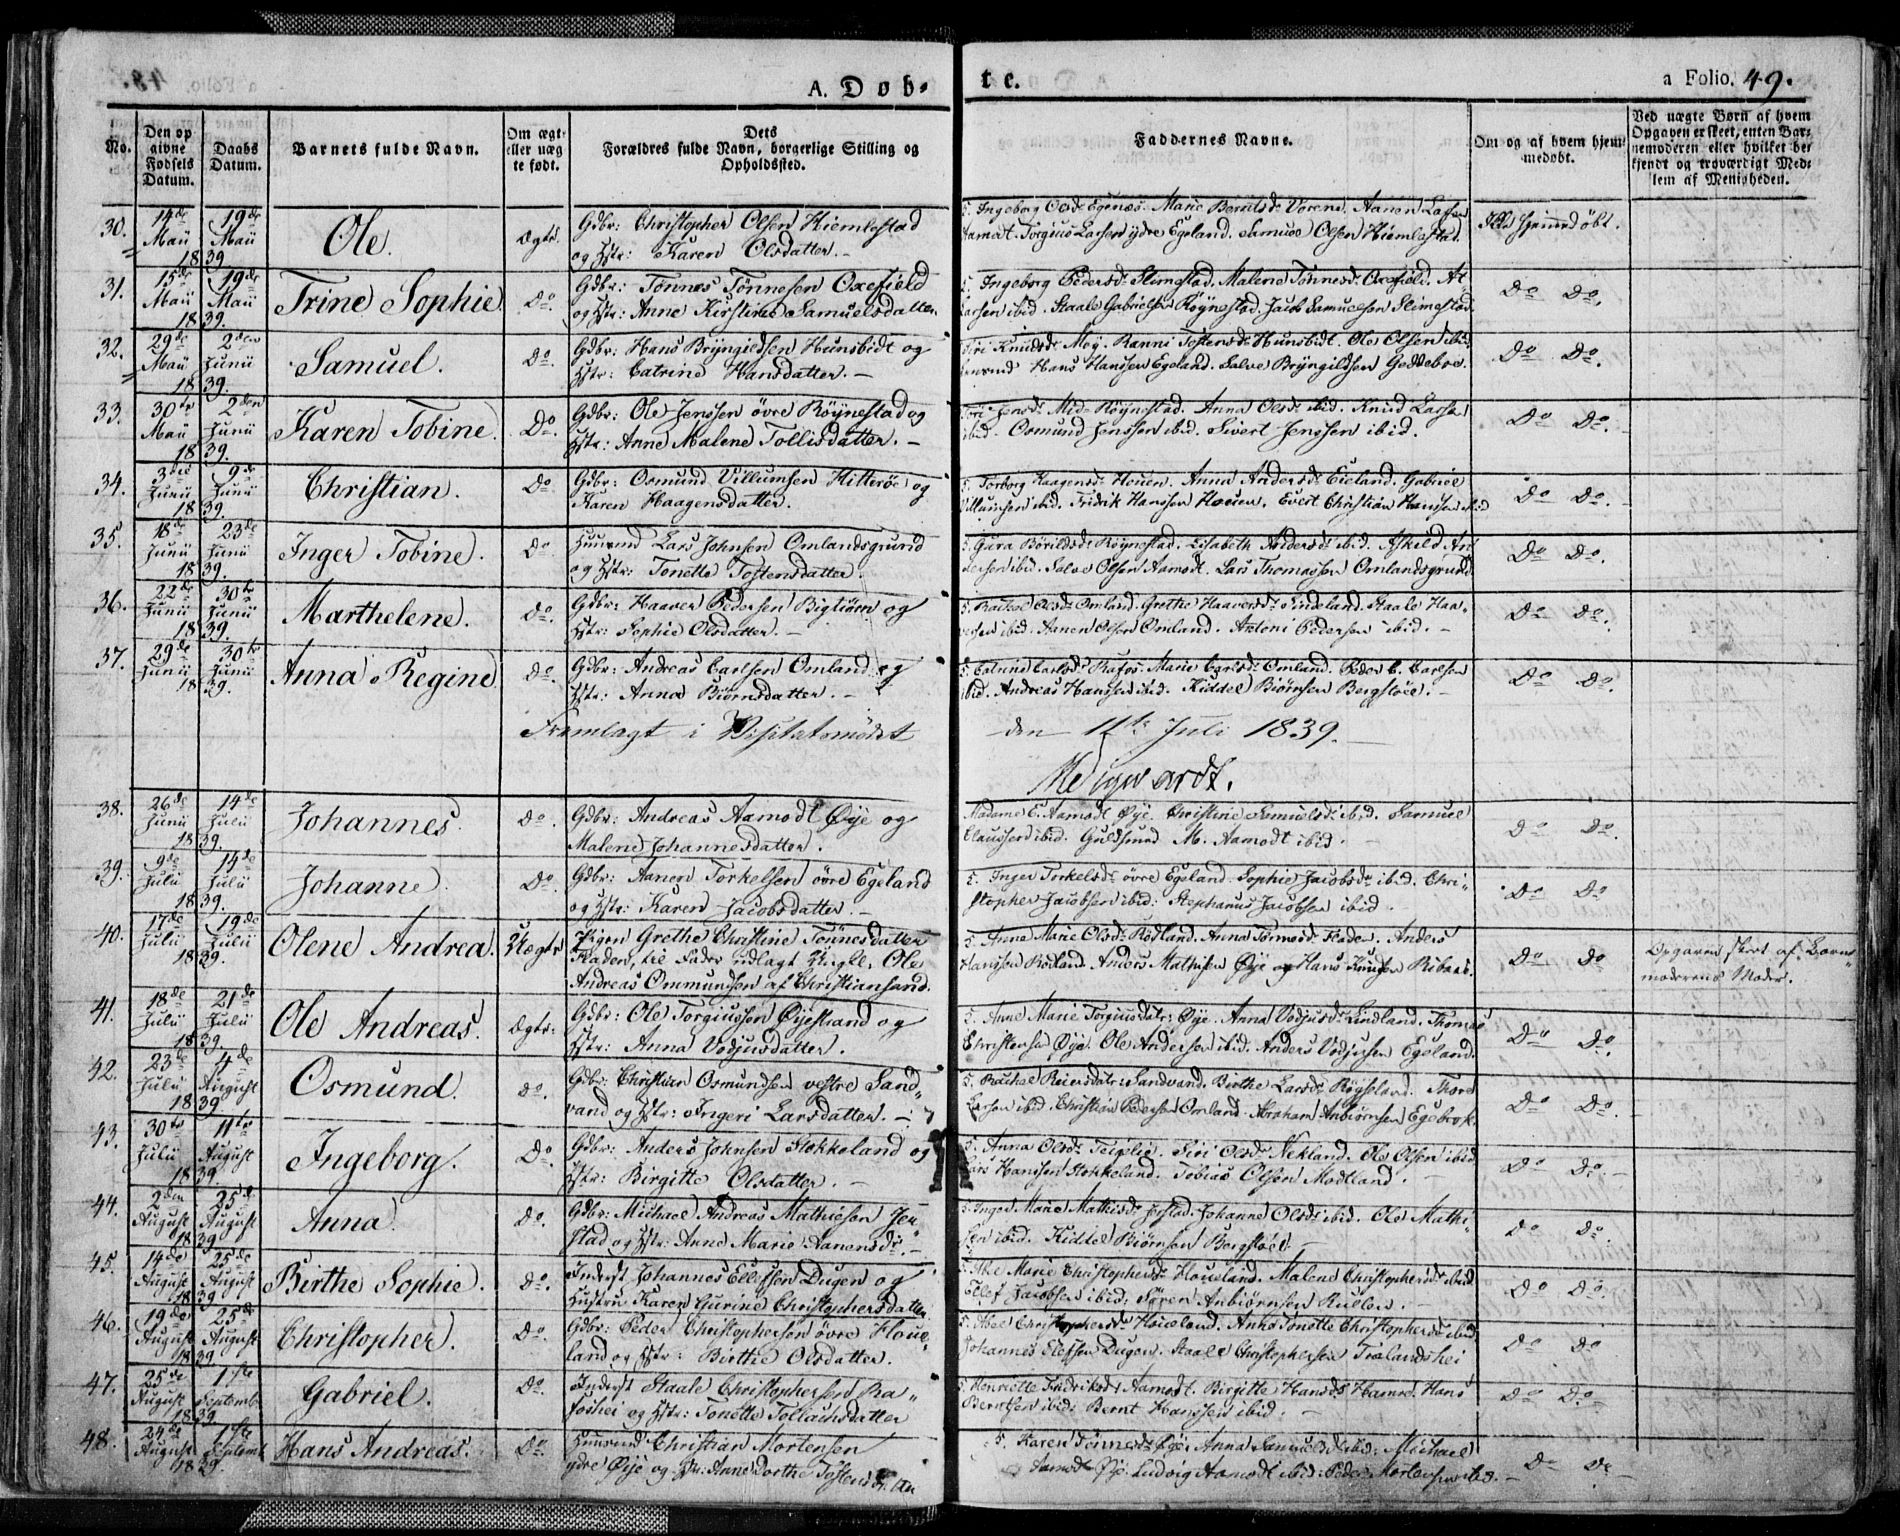 A. Døb-
te.
a Folio. 49.
No.
Den op
givne
Fødsels
Datum.
Daabs
Datum.
Barnets fulde Navn.
Om ægt-
eller uæg
te født.
Dets
Forældres fulde Navn, borgerlige Stilling og
Opholdssted.
Faddernes Navne.
Om og af hvem hjem-
medøbt.
Ved uægte Børn af hvem
Opgaven er skeet, enten Bar-
nemoderen eller hvilket be-
kjendt og troværdigt Med-
lem af Menigheden.
30. 14de Maii 1839 19de Maii Ole. Ægte.
Gdbr: Christopher Olsen Hiemlestad
og Hstr: Karen Olsdatter. –
S. Ingeborg Olsd: Egenæs. Marie Berntsd: Vorens. Aanen Larsen
Aamot. Torgius Larsen ydre Egeland. Samuel Olsen Hiemlestad.
Ikke hjemmedøbt.
31. 15de Maii 1839. 19de Maii Trine Sophie Do.
Gdbr: Tønnes Tønnesen Oxefield
og Hstr: Anne Kirstine Samuelsdatter
S. Ingeborg Pedersd: Slimestad. Malene Tønnesd: Oxefield.
Larsen ibid. Staale Gabrielsen Røynestad. Jacob Samuelsen Slimestad.
Do Do.
32. 29de Maii 1839. 2den Junii Samuel. Do.
Gdbr: Hans Bryngildsen Hunsbidt og
Hstr: Catrine Hansdatter. –
Siri Knudsd: Moy. Ranni Tostensd: Hunsbidt. Ole Olsen ibid.
Hans Hanssen Egeland. Salve Bryngildsen Geddebro.
Do Do.
33. 30te Maii 1839. 2den Junii Karen Tobine. Do.
Gdbr: Ole Jenssen øvre Røynestad og
Hstr: Anne Malene Tollisdatter. –
Siri Jensd: Mid-Røynestad. Anna Olsd: ibid. Knud Larsen
ibid. Osmund Jenssen ibid. Sivert Jenssen ibid.
Do Do.
34. 3die Junii 1839. 9de Junii Christian. Do
Gdbr: Osmund Villumsen Hitterøe og
Karen Haagensdatter.
S. Torborg Haagensd: Houen. Anna Andersd: Eieland. Gabriel
Villumsen ibid. Fridrik Hanssen Houen. Evert Christian Hanssen ibid
Do Do.
35. 18de Junii 1839. 23de Junii Inger Tobine. Do
Huusmd Lars Johnsen Omlandsgrund
og Hstr: Tonette Tostensdatter.
S. Gura Børildsd: Røynestad. Elisabeth Andersd: ibid. Askild An-
dersen ibid. Salve Olsen Aamodt. Lars Thomassen Omlandsgrund.
Do Do.
36. 22de Junii 1839. 30te Junii Marthelene. Do.
Gdbr: Haaver Pedersen Bigtiørn og
Hstr: Sophie Olsdatter. –
S. Rachel Olsd: Omland. Grethe Haaversd: Lindeland. Staale Haa-
versen ibid. Aanen Olsen Omland. Antoni Pedersen ibid. –
Do Do.
37. 29de Junii 1839. 30te Junii Anna Regine Do.
Gdbr: Andreas Carlsen Omland og
Hstr: Anna Biørnsdatter. –
S. Catrine Carlsd: Rafos. Marie Carlsd: Omland. Peder C. Carlsen
ibid. Andreas Hanssen ibid. Kiddel Biørnsen Bergsløe. –
Do Do.
Fremlagt i Visitatsmødet
den 11te Juli 1839. –
38. 26de Junii 1839. 14de Julii Johannes. Do.
Gdbr: Andreas Aamodt Øye og
Malene Johannesdatter.
Madame E. Aamodt Øye. Christine Samuelsd: ibid. Samuel
Claussen ibid. Guldsmed M. Aamodt ibid. –
Do Do.
39. 9de Julii 1839. 14de Julii Johanne. Do.
Gdbr: Aanen Torkelsen øvre Egeland
og Hstr: Karen Jacobsdatter. –
S. Inger Torkelsd: øvre Egeland. Sophie Jacobsd: ibid. Chri-
stopher Jacobsen ibid: Stephanus Jacobsen ibid.
Do Do.
40. 17de Julii 1839. 19de Julii Olene Andrea. Uægte
Pigen Grethe Christine Tønnesdatter
Fladen, til Fader udlagt Ungk. Ole
Andreas Ommundsen af Christiansand.
S. Anna Marie Olsd: Rødland. Anna Tønnesd: Fladen. Anders
Hanssen Rødland. Anders Mathisen Øye og Hans Knudsen Ribaas.
Do Do
Opgaven skeet af Barne-
moderens Moder.
41. 18de Julii 1839. 21de Julii Ole Andreas. Ægte:
Gdbr: Ole Torgiussen Øyestrand og
Hstr: Anna Vodjusdatter.
S. Anne Marie Torgiusdatr: Øye. Anna Vodjusd: Lindland. Thomas
Christensen Øye. Ole Andersen ibid. Anders Vodjusen Egeland.
Do Do.
42. 23de Julii 1839. 4de August Osmund. Do.
Gdbr: Christian Osmundsen vestre Sand-
vand og Hstr: Ingeri Larsdatter. –
S. Rachel Reiersdatr: Sandvand. Birthe Larsd: Røyseland. Thore
Larsen ibid. Christian Pedersen Omland. Abraham Anbiørnsen Egebrok.
Do Do.
43. 30te Julii 1839. 11te August Ingeborg. Do.
Gdbr: Anders Johnsen Stokkeland og
Hstr: Birgitte Olsdatter. –
S. Anna Olsd: Teiglie. Siri Olsd: Nekland. Ole Olsen ibid
Lars Hanssen Stokkeland. Tobias Olsen Modland.
Do Do.
44. 2den August 1839. 25de August Anna. Do.
Gdbr: Michael Andreas Mathiesen Jer-
stad og Hstr: Anne Marie Aanensd: –
S. Inger Marie Mathisd: Jerstad. Johanne Olsd: ibid. Ole Mathi-
sen ibid. Kiddel Biørnsen Bergsløe. –
Do Do.
45. 14de August 1839. 25de August Birthe Sophie. Do.
Inderst Johannes Ellefsen Dugen og
Hustru Karen Gurine Christophersdatter
Marie Christophersd: Houeland. Malene Christophersd: ibid
Ellef Jacobsen ibid: Søren Anbiørnsen Rullen. –
Do Do.
46. 19de August 1839. 25de August Christopher. Do.
Gdbr: Peder Christophersen øvre Houe-
land og Hstr: Birthe Olsdatter.
S. Abel Christophersd: Houeland. Anne Tonette Christophersd: ibid
Johannes Elefsen Dugen. Staale Christophersen Fælandshei
Do Do
47. 25de August 1839. 1ste Septemb. Gabriel. Do.
Inderst Staale Christophersen Ra-
foshei og Hstr: Tonette Tollachsdatter
S. Henriette Fredriksd: Aamodt. Birgitte Hansd: Hamre. Hans
Berntsen ibid: Bernt Hanssen ibid:
Do Do.
48. 24de August 1839. 1ste Septemb Hans Andreas. Do.
Huusmd Christian Mortensen
ydre Øye og Hstr: Anne Dorthe Tostensdatter
S. Karen Tønnesd: Øye. Anna Samuelsd: ibid: Michael
Aamodt Øye. Ludvig Aamodt ibid: Peder Mortensen ibid. –
Do Do –